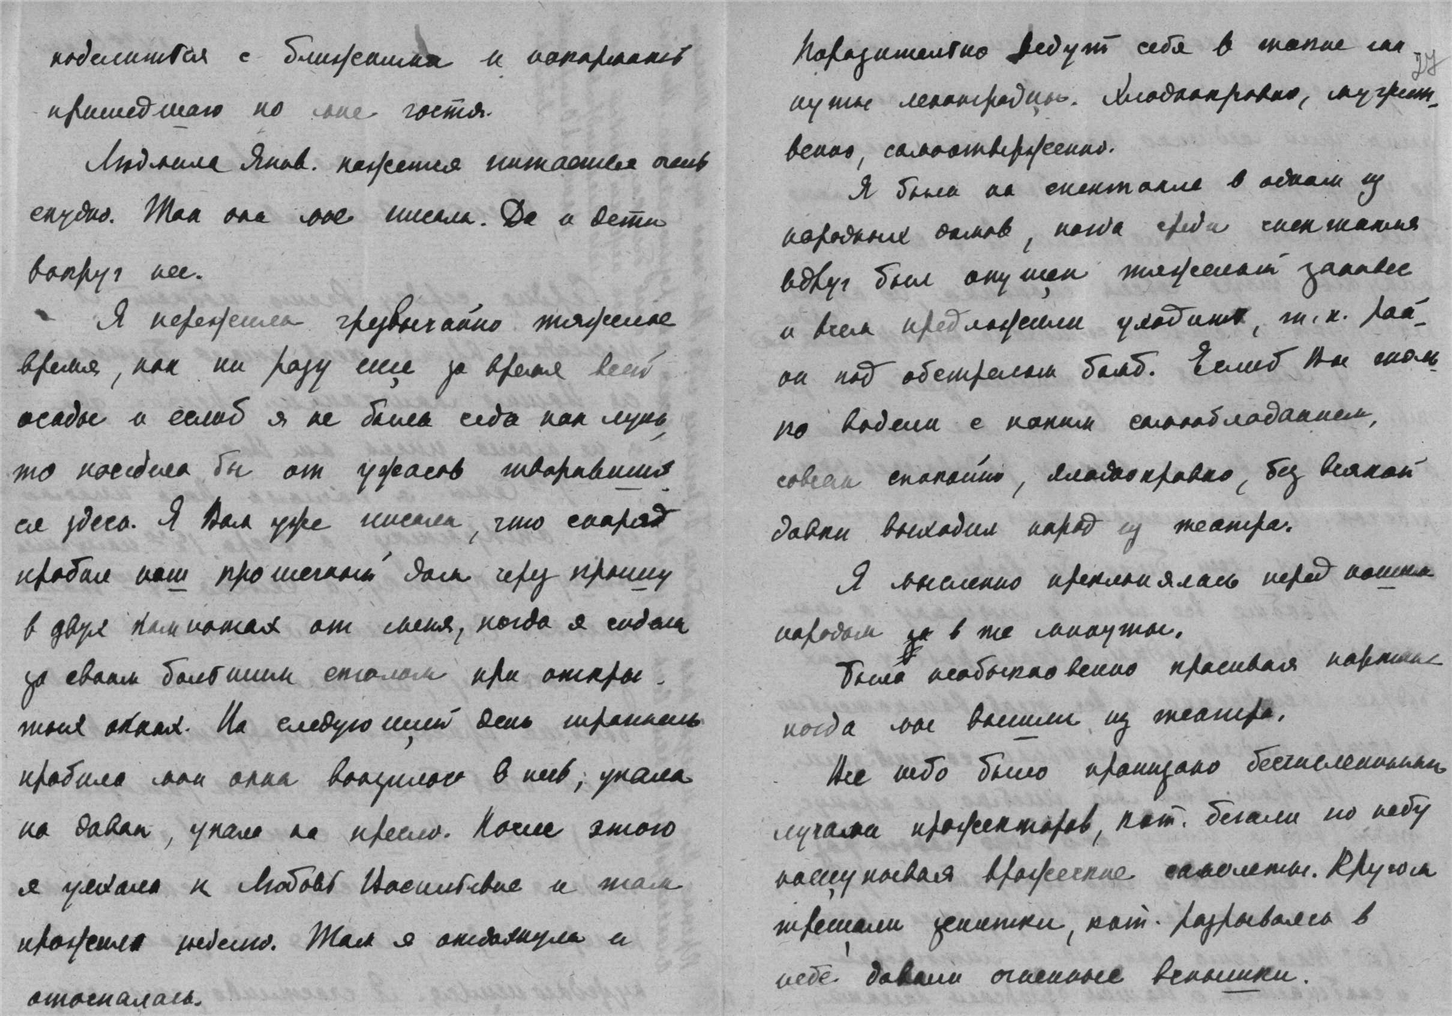 поделиться с ближними и накормить
пришедшаго ко мне гостя.
Людмила Янов. кажется питается очень
скудно. Так она мне писала. Да и дети
вокруг нее.
Я пережила чрезвычайно тяжелое
время, как ни разу еще за время всей
осады и еслиб я не была седа как лунь,
то поседела бы от ужасов творивших
ся здесь. Я Вам уже писала, что снаряд
пробил наш трехэтажный дом через крышу
в двух комнатах от меня, когда я сидела
за своим большим столом при откры-
тых окнах. На следующий день шрапнель
пробила мои окна вонзилась в них, упала
на диван, упала на кресло. После этого
я уехала к Любовь Иосиповне и там
прожила неделю. Там я отдохнула и
отоспалась.
27
Поразительно ведут себя в такие ми-
нуты ленинградцы. Хладнокровно, мужест-
венно, самоотверженно.
Я была на спектакле в одном из
народных домов, когда среди спектакля
вдруг был опущен тяжелый занавес
и всем предложили уходить, т.к. рай-
он под обстрелом бомб. Еслиб Вы толь-
ко видели с каким самообладанием,
совсем спокойно, хладнокровно, без всякой
давки выходил народ из театра.
Я мысленно преклонялась перед нашим
народом в те минуты.
Была необыкновенно красивая картина
когда мы вышли из театра.
Все небо было пронизано бесчисленными
лучами прожекторов, кот. бегали по небу
нащупывая вражеские самолеты. Кругом
трещали зенитки, кот. разрываясь в
небе давали огненные вспышки.